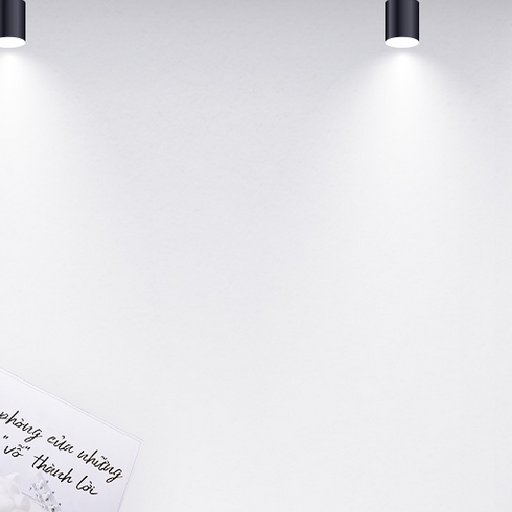 phòng của những
"vỡ" thành lời